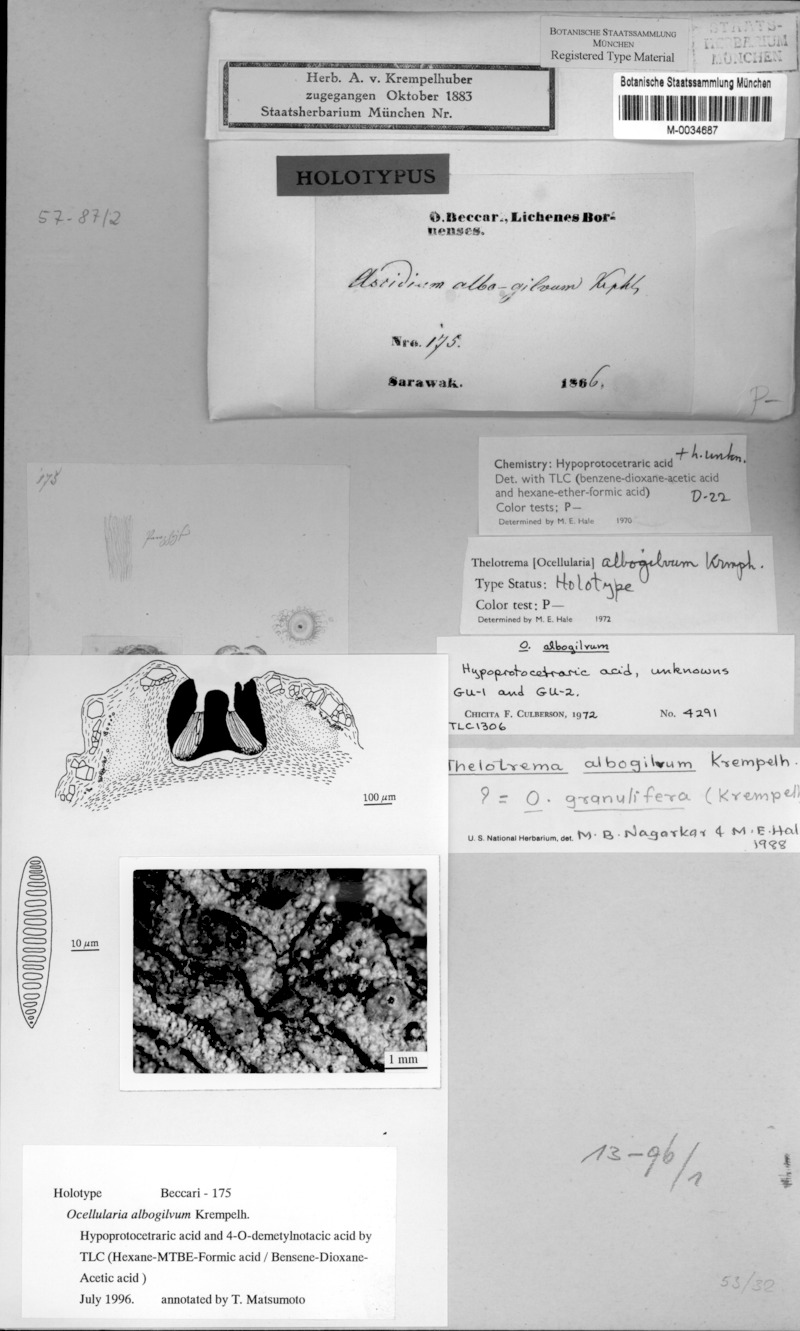 BOTANISCHE STAATSSAMMLUNG
MÜNCHEN
Registered Type Material
STAATS-
HERBARIUM
MÜNCHEN
Herb. A. v. Krempelhuber
zugegangen Oktober 1883
Staatsherbarium München Nr.
Botanische Staatssammlung München
M-0034687
HOLOTYPUS
57-87/2
O. Beccar., Lichenes Bor-
nenses.
Ascidium albo-gilvum Krphl,
Nro. 175.
Sarawak. 1866.
P-
175
Chemistry: Hypoprotocetraric acid + h. unkn.
Det. with TLC (benzene-dioxane-acetic acid
and hexane-ether-formic acid) D-22
Color tests; P-
Determined by M. E. Hale 1970
Thelotrema [Ocellularia] albogilvum Krmph.
Type Status: Holotype
Color test: P-
Determined by M. E. Hale 1972
O. albogilvum
Hypoprotocetraric acid, unknowns
GU-1 and GU-2.
CHICITA F. CULBERSON, 1972 No. 4291
TLC1306
Thelotrema albogilvum Krempelh.
? = O. granulifera (Krempelh
U. S. National Herbarium, det. M. B. Nagarkar & M. E. Hal
1988
100 µm
10 µm
1 mm
13-96/1
Holotype Beccari - 175
Ocellularia albogilvum Krempelh.
Hypoprotocetraric acid and 4-O-demetylnotacic acid by
TLC (Hexane-MTBE-Formic acid / Bensene-Dioxane-
Acetic acid )
July 1996. annotated by T. Matsumoto
53/32